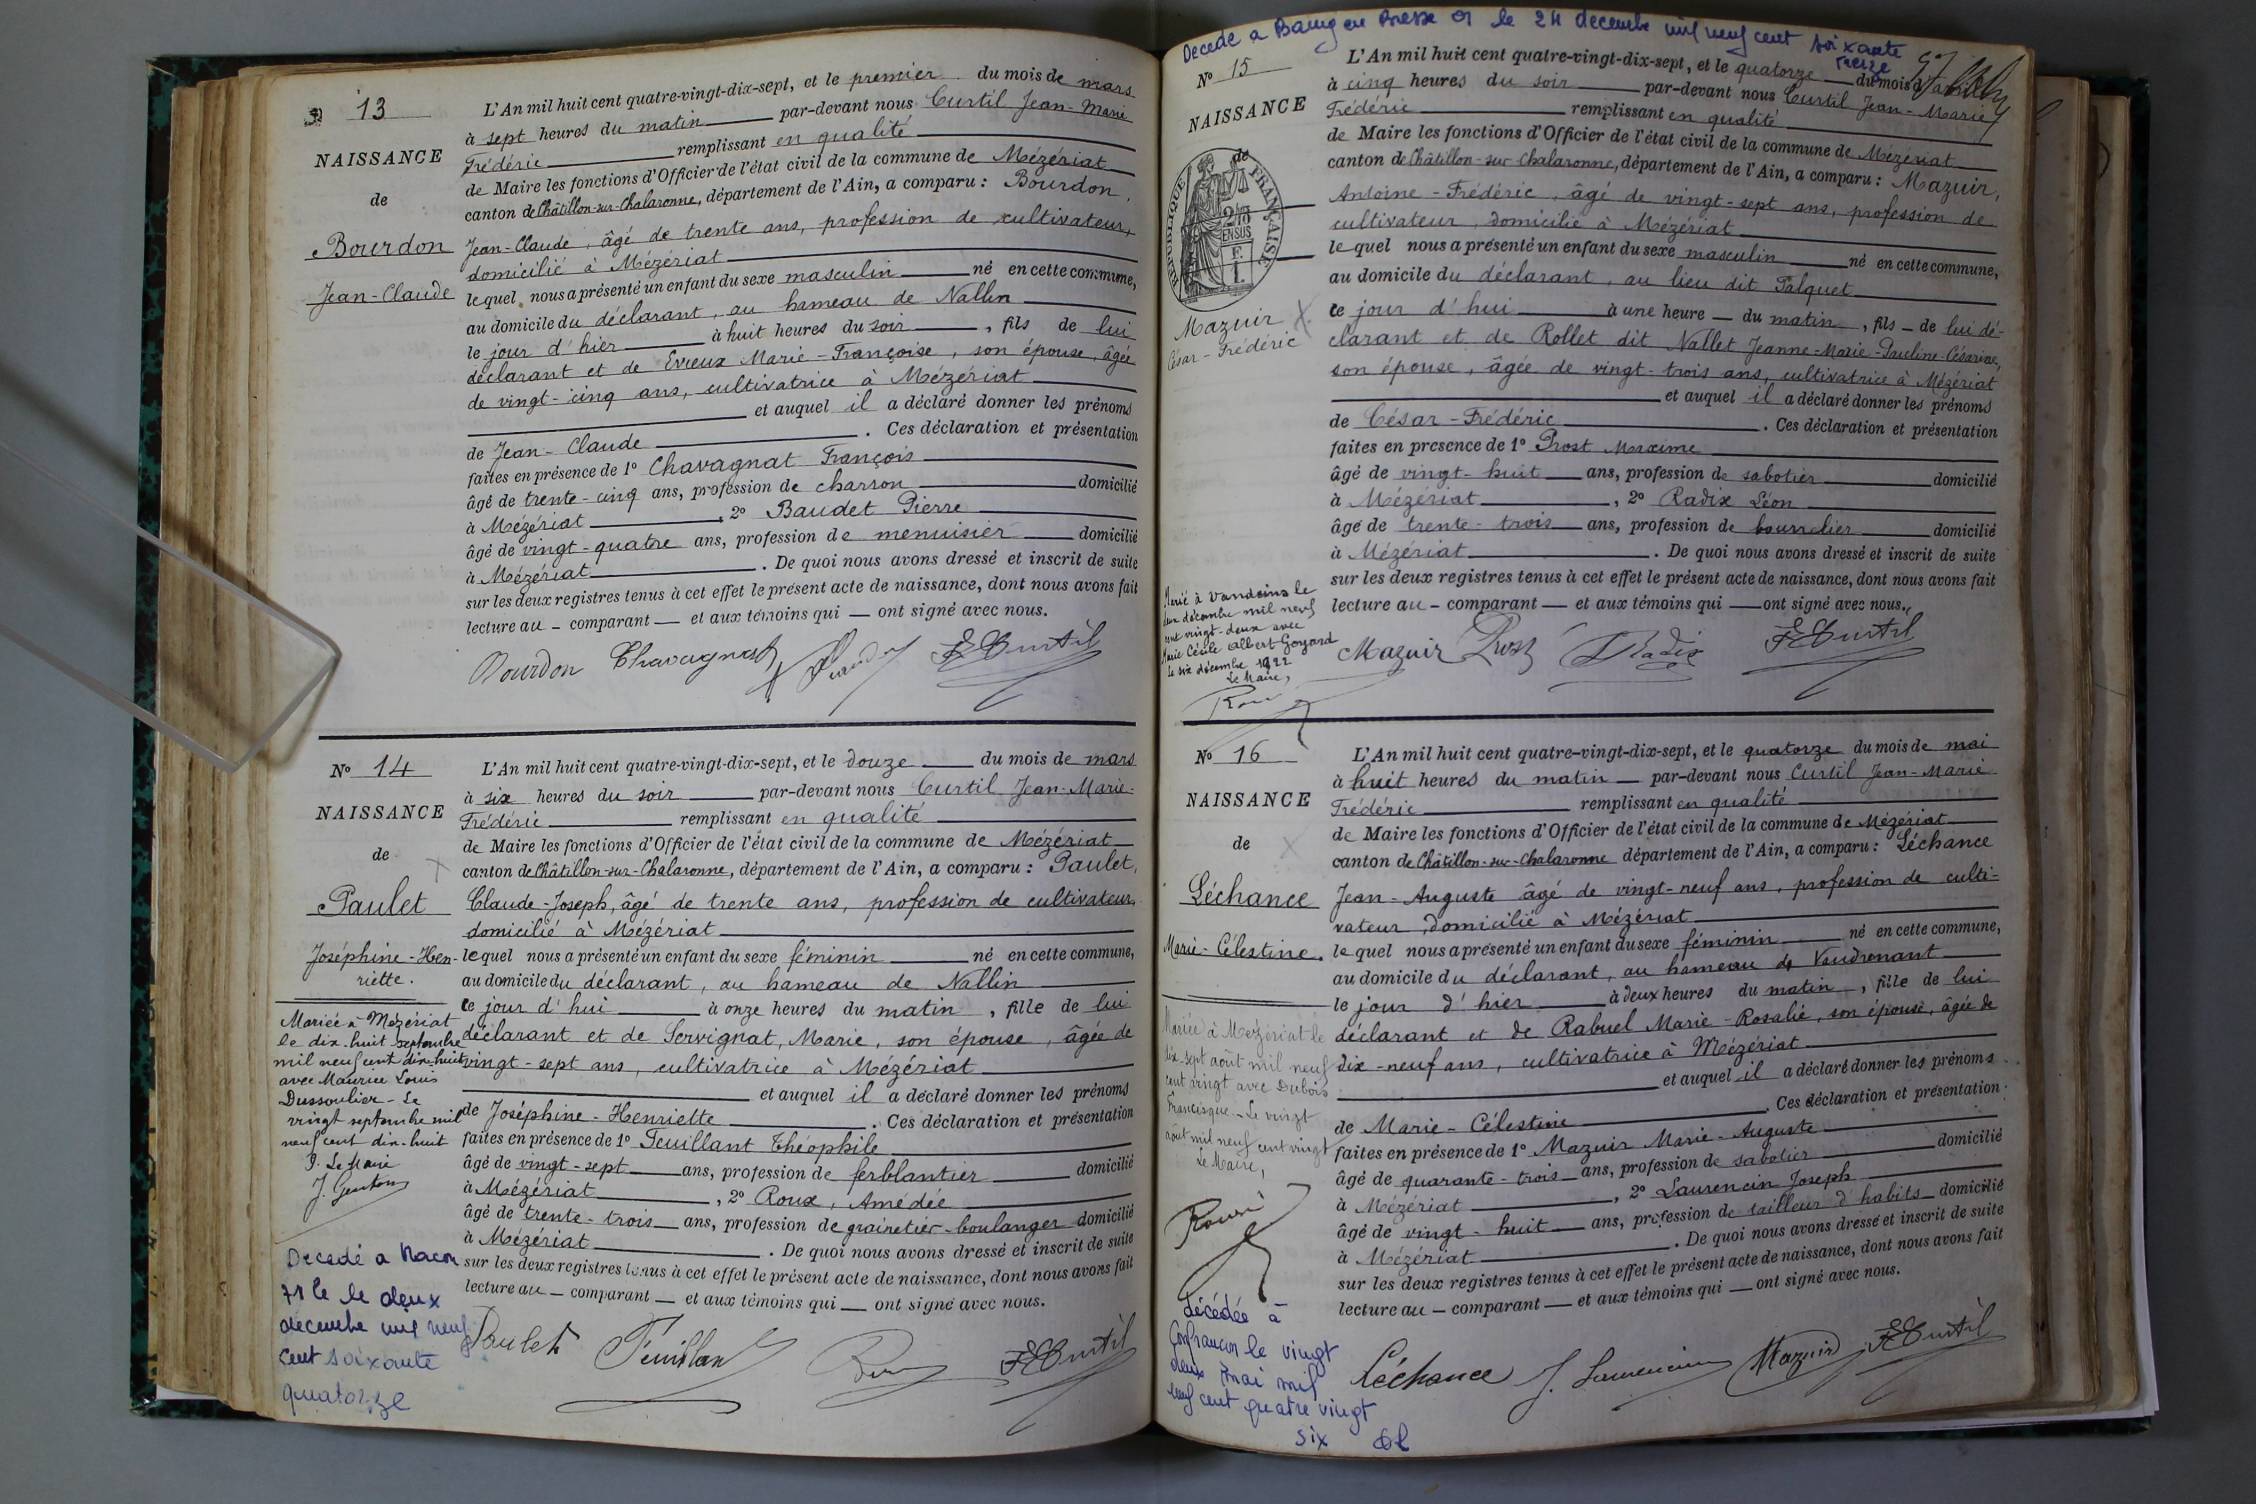 N° 13
NAISSANCE
de
Bourdon
Jean-Claude
L'An mil huit cent quatre-vingt-dix-sept, et le premier du mois de mars
à sept heures du matin par-devant nous Curtil Jean-Marie
Frédéric remplissant en qualité
de Maire les fonctions d'Officier de l'état civil de la commune de Mézériat
canton de Châtillon-sur-Chalaronne, département de l'Ain, a comparu : Bourdon,
Jean-Claude, âgé de trente ans, profession de cultivateur,
domicilié à Mézériat
lequel nous a présenté un enfant du sexe masculin né en cette commune,
au domicile du déclarant, au hameau de Nallin
le jour d'hier à huit heures du soir, fils de lui
déclarant et de Evieux Marie-Françoise, son épouse, âgée
de vingt-cinq ans, cultivatrice à Mézériat
et auquel il a déclaré donner les prénoms
de Jean-Claude. Ces déclaration et présentation
faites en présence de 1° Chavagnat François
âgé de trente-cinq ans, profession de charron domicilié
à Mézériat, 2° Baudet Pierre
âgé de vingt-quatre ans, profession de menuisier domicilié
à Mézériat. De quoi nous avons dressé et inscrit de suite
sur les deux registres tenus à cet effet le présent acte de naissance, dont nous avons fait
lecture au comparant et aux témoins qui ont signé avec nous.
Bourdon Chavagnat Baudet F Curtil
N° 14
NAISSANCE
de
Paulet
Joséphine-Hen-
riette.
Mariée à Mézériat
le dix-huit septembre
mil neuf cent dix-huit
avec Maurice Louis
Dussoulier - Le
vingt septembre mil
neuf cent dix-huit
Le Maire
Decedé a Macon
71 le le deux
decembre mil neuf
cent soixante
quatorze
L'An mil huit cent quatre-vingt-dix-sept, et le douze du mois de mars
à six heures du soir par-devant nous Curtil Jean-Marie-
Frédéric remplissant en qualité
de Maire les fonctions d'Officier de l'état civil de la commune de Mézériat
canton de Châtillon-sur-Chalaronne, département de l'Ain, a comparu : Paulet,
Claude-Joseph, âgé de trente ans, profession de cultivateur,
domicilié à Mézériat
lequel nous a présenté un enfant du sexe féminin né en cette commune,
au domicile du déclarant, au hameau de Nallin
ce jour d'hui à onze heures du matin, fille de lui
déclarant et de Servignat, Marie, son épouse, âgée de
vingt-sept ans, cultivatrice à Mézériat
et auquel il a déclaré donner les prénoms
de Joséphine-Henriette. Ces déclaration et présentation
faites en présence de 1° Feuillant Théophile
âgé de vingt-sept ans, profession de ferblantier domicilié
à Mézériat, 2° Roux, Amédée
âgé de trente-trois ans, profession de grainetier-boulanger domicilié
à Mézériat. De quoi nous avons dressé et inscrit de suite
sur les deux registres tenus à cet effet le présent acte de naissance, dont nous avons fait
lecture au comparant et aux témoins qui ont signé avec nous.
Paulet Feuillant Roux F Curtil
Decede a Bourg en Bresse 01 le 24 decembre mil neuf cent soixante
treize
N° 15
NAISSANCE
de
RÉPUBLIQUE FRANÇAISE
2/10 EN SUS
F.
1.
Mazuir
César-Frédéric
Marié à Vandeins le
deux décembre mil neuf
cent vingt-deux avec
Marie Cécile Albert Goyard
Le six décembre 1922
Le Maire,
L'An mil huit cent quatre-vingt-dix-sept, et le quatorze du mois d'avril
à cinq heures du soir par-devant nous Curtil Jean-Marie
Frédéric remplissant en qualité
de Maire les fonctions d'Officier de l'état civil de la commune de Mézériat
canton de Châtillon-sur-Chalaronne, département de l'Ain, a comparu : Mazuir,
Antoine-Frédéric, âgé de vingt-sept ans, profession de
cultivateur, domicilié à Mézériat
lequel nous a présenté un enfant du sexe masculin né en cette commune,
au domicile du déclarant, au lieu dit Falquet
ce jour d'hui à une heure du matin, fils de lui dé-
clarant et de Rollet dit Nallet Jeanne-Marie-Pauline-Césarine,
son épouse, âgée de vingt-trois ans, cultivatrice à Mézériat
et auquel il a déclaré donner les prénoms
de César-Frédéric. Ces déclaration et présentation
faites en présence de 1° Prost Maxime
âgé de vingt-huit ans, profession de sabotier domicilié
à Mézériat, 2° Radix Léon
âgé de trente-trois ans, profession de bourrelier domicilié
à Mézériat. De quoi nous avons dressé et inscrit de suite
sur les deux registres tenus à cet effet le présent acte de naissance, dont nous avons fait
lecture au comparant et aux témoins qui ont signé avec nous.
Mazuir Prost L Radix F Curtil
N° 16
NAISSANCE
de
Léchance
Marie-Célestine.
Mariée à Mézériat le
dix-sept août mil neuf
cent vingt avec Dubois
Francisque - Le vingt
août mil neuf cent vingt
Le Maire,
décédée à
Confrançon le vingt
deux mai mil
neuf cent quatre vingt
six
L'An mil huit cent quatre-vingt-dix-sept, et le quatorze du mois de mai
à huit heures du matin par-devant nous Curtil Jean-Marie
Frédéric remplissant en qualité
de Maire les fonctions d'Officier de l'état civil de la commune de Mézériat
canton de Châtillon-sur-Chalaronne département de l'Ain, a comparu : Léchance
Jean-Auguste âgé de vingt-neuf ans, profession de culti-
vateur, domicilié à Mézériat
lequel nous a présenté un enfant du sexe féminin né en cette commune,
au domicile du déclarant, au hameau de Vaudrenant
le jour d'hier à deux heures du matin, fille de lui
déclarant et de Rabuel Marie-Rosalie, son épouse, âgée de
dix-neuf ans, cultivatrice à Mézériat
et auquel il a déclaré donner les prénoms
de Marie-Célestine. Ces déclaration et présentation
faites en présence de 1° Mazuir Marie-Auguste
âgé de quarante-trois ans, profession de sabotier domicilié
à Mézériat, 2° Laurencin Joseph
âgé de vingt-huit ans, profession de tailleur d'habits domicilié
à Mézériat. De quoi nous avons dressé et inscrit de suite
sur les deux registres tenus à cet effet le présent acte de naissance, dont nous avons fait
lecture au comparant et aux témoins qui ont signé avec nous.
Léchance J. Laurencin Mazuir F Curtil